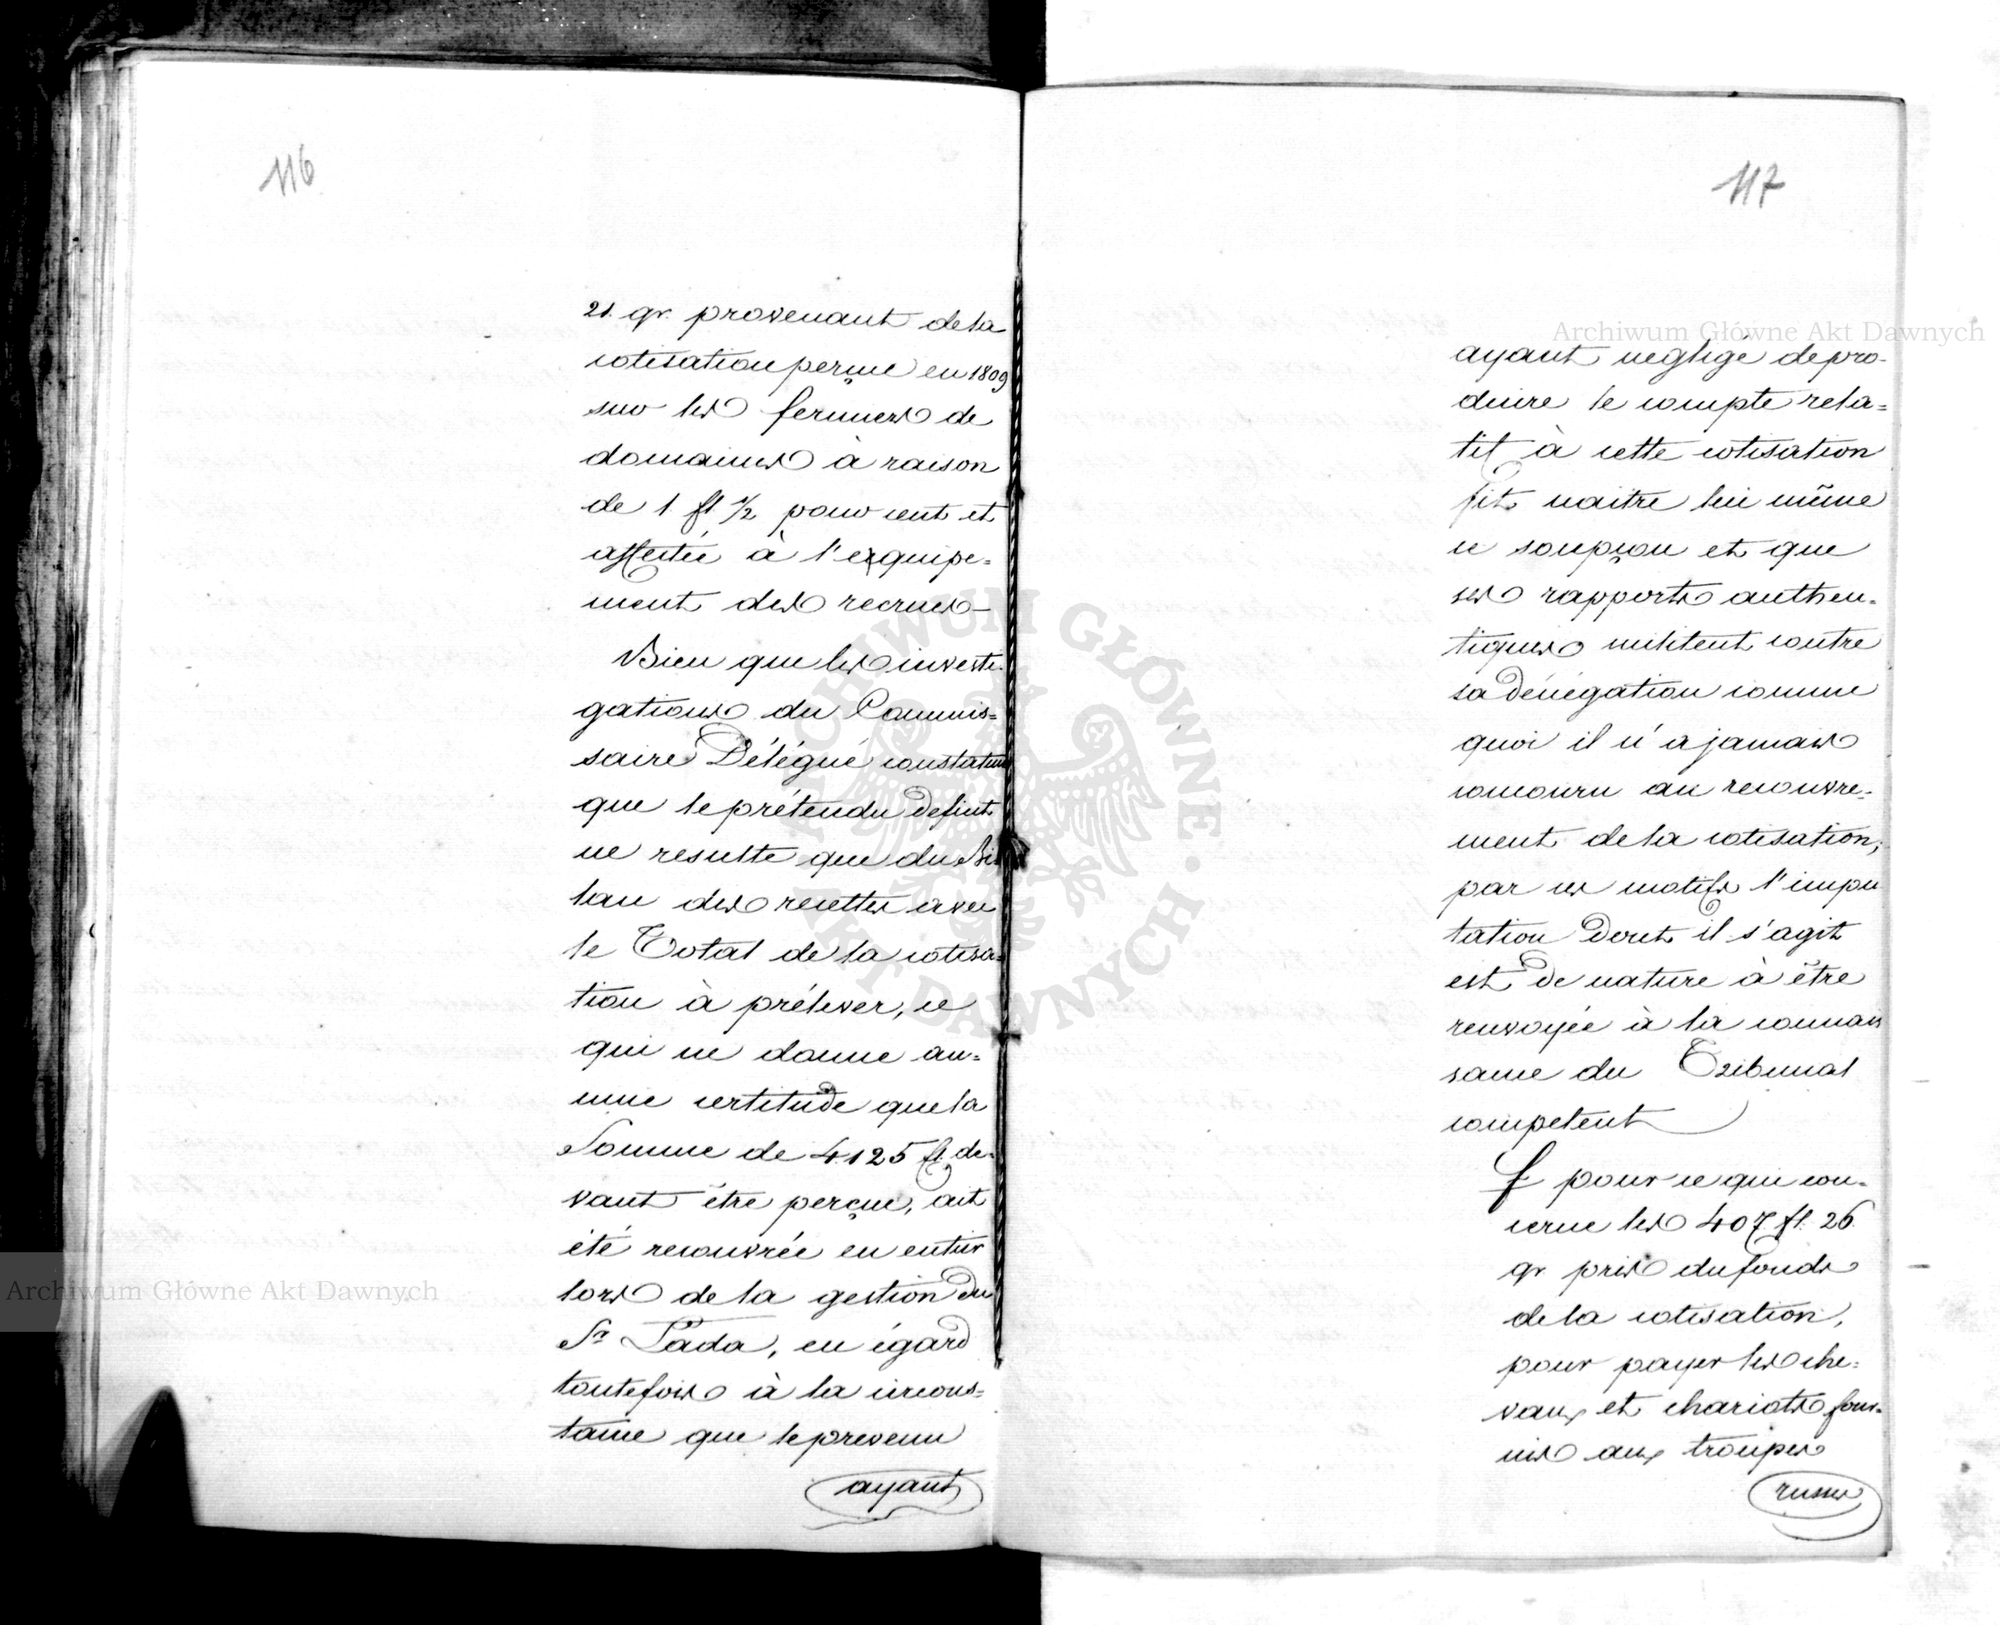 116
21. gr. provenant de la
cotisation perçue en 1809
sur les fermiers de
domaines à raison
de 1 fl ½ pour cent et
affectée à l'equipe=
ment des recrues –
Bien que les investi
gations du Commis=
saire Délégué constatent
que le prétendu deficit
ne resulte que du Bi
lan des recettes avec
le Total de la cotisa=
tion à prélever, ce
qui ne donne au=
cune certitude que la
Somme de 4125 fl. de=
vant être perçue, ait
été recouvrée en entier
lors de la gestion du
Sr Lada, eu égard
toutefois à la circons=
tance que le prevenu
ayant
117
ayant negligé de pro-
duire le compte rela=
tif à cette cotisation
fit naitre lui même
ce soupçon et que
ses rapports authen=
tiques militent contre
sa dénégation comme
quoi il n'a jamais
concouru au recouvre=
ment de la cotisation;
par ces motifs l'impu
tation dont il s'agit
est de nature à être
renvoyée à la connais
sance du Tribunal
competent
f pour ce qui con=
cerne les 407 fl. 26.
gr pris du fonds
de la cotisation,
pour payer les che=
vaux et chariots four=
nis aux troupes
russes
Archiwum Główne Akt Dawnych
Archiwum Główne Akt Dawnych
ARCHIWUM GŁÓWNE · AKT DAWNYCH ·